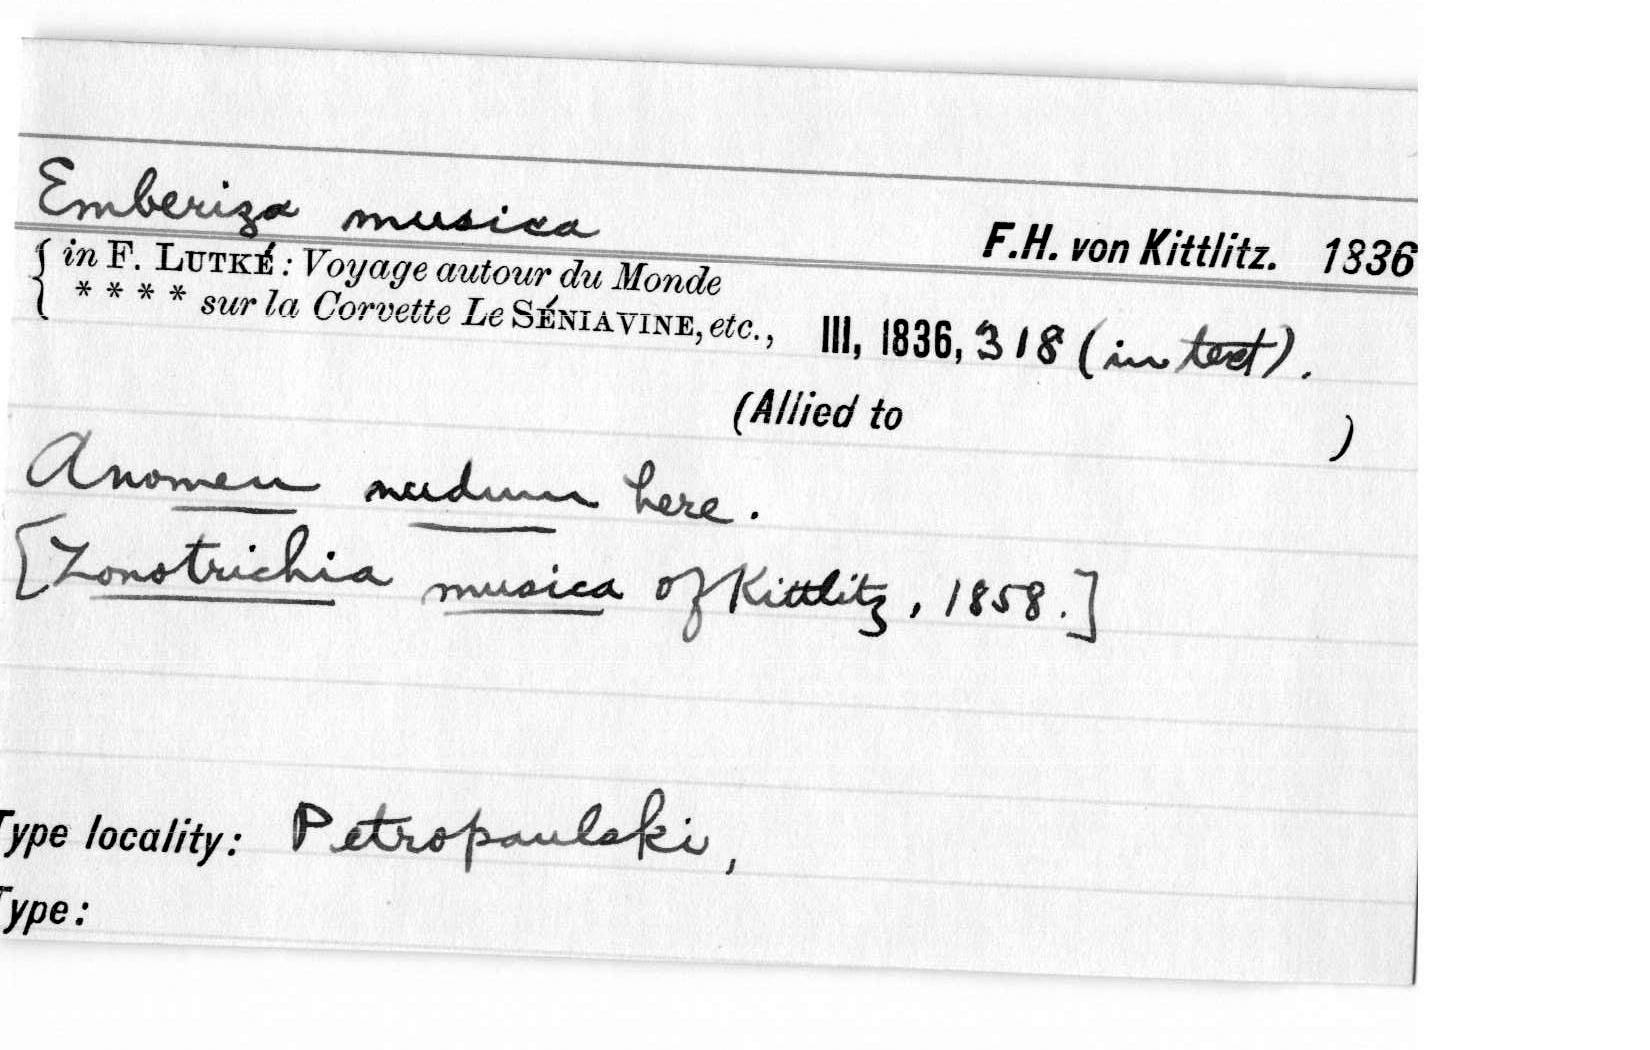 Emberiza musica
F.H. von Kittlitz. 1836
in F. LUTKÉ: Voyage autour du Monde
* * * * sur la Corvette Le SÉNIAVINE, etc., III, 1836, 318 (in text).
(Allied to )
A nomen nudum here.
[Zonotrichia musica of Kittlitz, 1858.]
Type locality: Petropaulski,
Type: